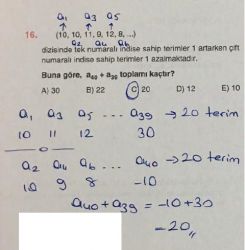 a₁ a₃ a₅
16. (10, 10, 11, 9, 12, 8, ...)
a₂ a₄ a₆
dizisinde tek numaralı indise sahip terimler 1 artarken çift
numaralı indise sahip terimler 1 azalmaktadır.
Buna göre, a₄₀ + a₃₉ toplamı kaçtır?
A) 30 B) 22 C) 20 D) 12 E) 10
a₁ a₃ a₅ ... a₃₉ → 20 terim
10 11 12 30
a₂ a₄ a₆ ... a₄₀ → 20 terim
10 9 8 -10
a₄₀ + a₃₉ = -10 + 30
= 20,,